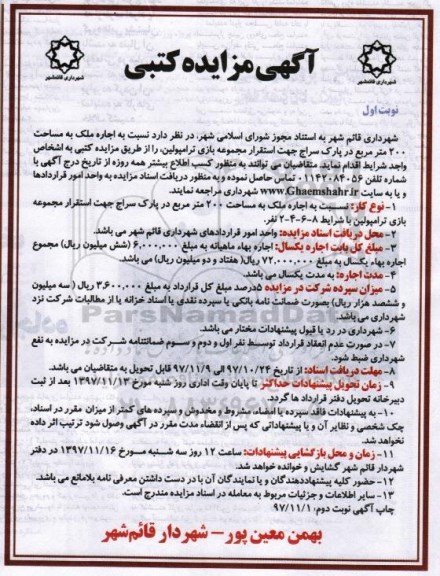 آگهی مزایده کتبی
شهرداری قائمشهر
شهرداری قائمشهر
نوبت اول
شهرداری قائم شهر به استناد مجوز شورای اسلامی شهر، در نظر دارد نسبت به اجاره ملک به مساحت
۲۰۰ متر مربع در پارک سراج جهت استقرار مجموعه بازی ترامپولین، را از طریق مزایده کتبی به اشخاص
واجد شرایط اقدام نماید. متقاضیان می توانند به منظور کسب اطلاع بیشتر همه روزه از تاریخ درج آگهی با
شماره تلفن ۰۱۱۴۲۰۸۴۰۵۶ تماس حاصل نموده و به منظور دریافت اسناد مزایده به واحد امور قراردادها
و یا به سایت www.Ghaemshahr.ir شهرداری مراجعه نمایند.
۱- نوع کار: نسبت به اجاره ملک به مساحت ۲۰۰ متر مربع در پارک سراج جهت استقرار مجموعه
بازی ترامپولین با شرایط ۸-۶-۴-۲ نفر.
۲- محل دریافت اسناد مزایده: واحد امور قراردادهای شهرداری قائم شهر می باشد.
۳- مبلغ کل بابت اجاره یکسال: اجاره بهاء ماهیانه به مبلغ ۶,۰۰۰,۰۰۰ (شش میلیون ریال) مجموع
اجاره بهاء یکسال به مبلغ ۷۲,۰۰۰,۰۰۰ ریال( هفتاد و دو میلیون ریال) می باشد.
۴- مدت اجاره: به مدت یکسال می باشد.
۵- میزان سپرده شرکت در مزایده ۵درصد مبلغ کل قرارداد به مبلغ ۳,۶۰۰,۰۰۰ ریال ( سه میلیون
و ششصد هزار ریال) بصورت ضمانت نامه بانکی یا سپرده نقدی یا اسناد خزانه یا از مطالبات شرکت نزد
شهرداری می باشد.
۶- شهرداری در رد یا قبول پیشنهادات مختار می باشد.
۷- در صورت عدم انعقاد قرارداد توسط نفر اول و دوم و سوم ضمانتنامه شرکت در مزایده به نفع
شهرداری ضبط شود.
۸- مهلت دریافت اسناد: از تاریخ ۹۷/۱۰/۲۴ الی ۹۷/۱۱/۹ قابل تحویل به متقاضیان می باشد.
۹- زمان تحویل پیشنهادات حداکثر تا پایان وقت اداری روز شنبه مورخ ۱۳۹۷/۱۱/۱۳ بعد از ثبت
دبیرخانه تحویل دفتر قرارداد ها گردد.
۱۰- به پیشنهادات فاقد سپرده یا امضاء، مشروط و مخدوش و سپرده های کمتر از میزان مقرر در اسناد،
چک شخصی و نظایر آن و یا پیشنهاداتی که پس از انقضاء مدت مقرر در آگهی وصول شود ترتیب اثر داده
نخواهد شد.
۱۱- زمان و محل بازگشایی پیشنهادات: ساعت ۱۲ روز سه شنبه مورخ ۱۳۹۷/۱۱/۱۶ در دفتر
شهردار قائم شهر گشایش و خوانده خواهد شد.
۱۲- حضور کلیه پیشنهاددهندگان و یا نمایندگان آن با در دست داشتن معرفی نامه بلامانع می باشد.
۱۳- سایر اطلاعات و جزئیات مربوط به معامله در اسناد مزایده مندرج است.
چاپ آگهی نوبت دوم: ۹۷/۱۱/۱
بهمن معین پور – شهردار قائم‌شهر
ParsNamadData